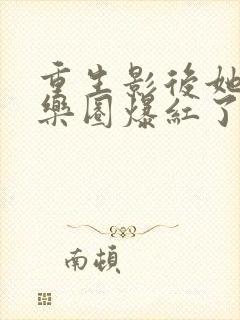 重生影後她
樂圈爆紅了
南頓